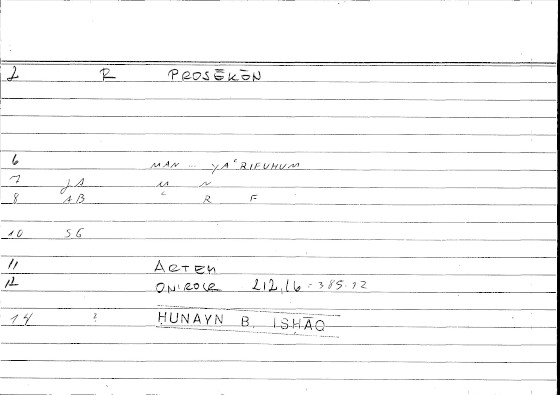 2 R PROSĒKŌN
6 MAN ... YAʿRIFUHUM
7 JA M N
8 AB ʿ R F
10 SG
11 ARTEM
12 ONIROCR 212,16 = 385.12
14 ? ḤUNAYN B. ISḤĀQ